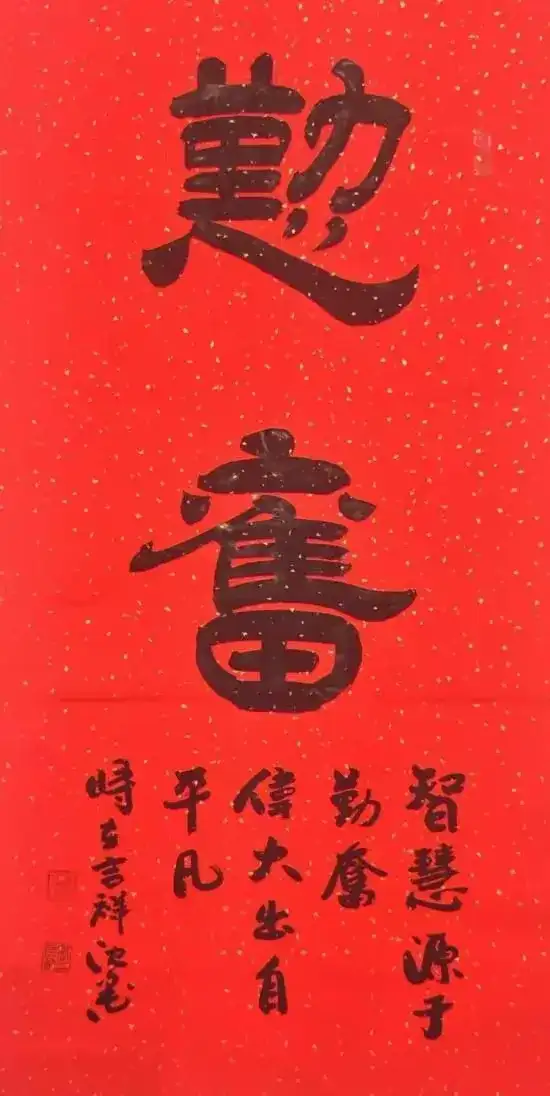 懃
奮
智慧源于
勤奮
偉大出自
平凡
時在吉祥